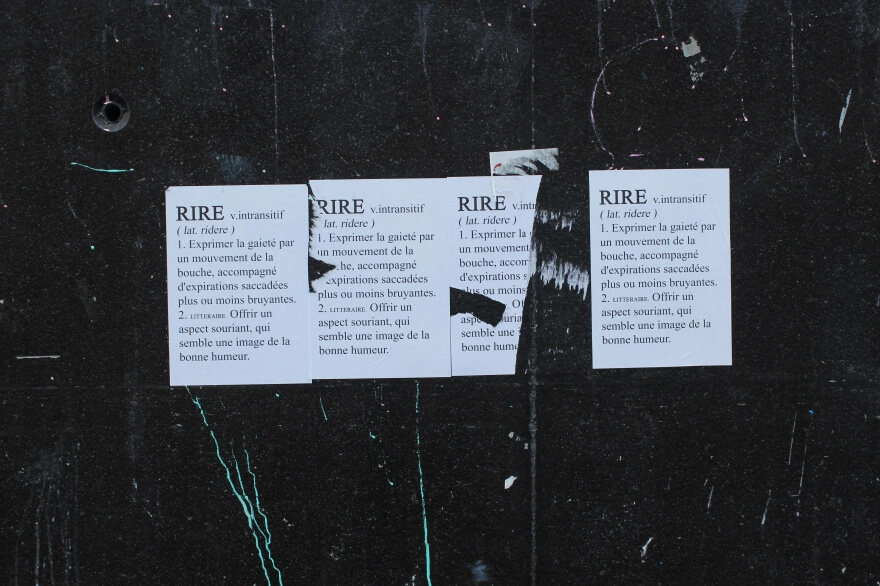 RIRE v.intransitif
( lat. ridere )
1. Exprimer la gaieté par
un mouvement de la
bouche, accompagné
d'expirations saccadées
plus ou moins bruyantes.
2. LITTERAIRE. Offrir un
aspect souriant, qui
semble une image de la
bonne humeur.
RIRE v.intransitif
lat. ridere )
1. Exprimer la gaieté par
un mouvement de la
he, accompagné
expirations saccadées
plus ou moins bruyantes.
2. LITTERAIRE. Offrir un
aspect souriant, qui
semble une image de la
bonne humeur.
RIRE v.intr
( lat. ridere )
1. Exprimer la g
un mouvement
bouche, accom
d'expirations s
plus ou moins
Of
semble une
bonne hume
RIRE v.intransitif
( lat. ridere )
1. Exprimer la gaieté par
un mouvement de la
bouche, accompagné
d'expirations saccadées
plus ou moins bruyantes.
2. LITTERAIRE. Offrir un
aspect souriant, qui
semble une image de la
bonne humeur.